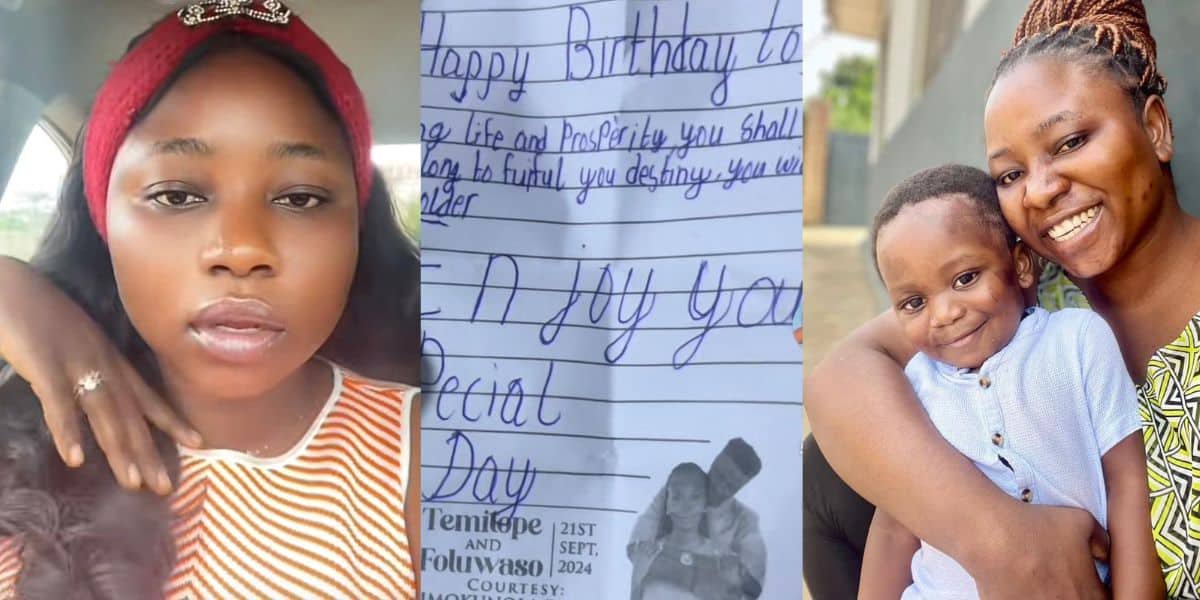 Happy Birthday to
ng life and Prosperity you shall
long to fulful you destiny. you wi
older
Enjoy you
Special
Day
Temitope
AND
Foluwaso
21ST
SEPT,
2024
COURTESY: